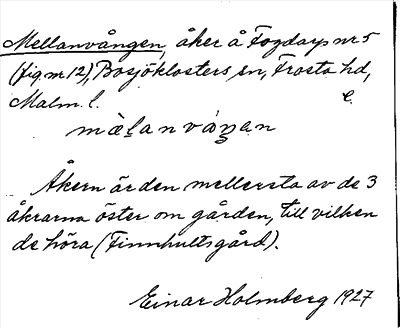 Mellanvången, åker å Fogdarp nr 5
(fig. nr 12), Bosjöklosters sn, Frosta hd,
Malm. l.
mèlanvàŋen
Åkern är den mellersta av de 3
åkrarna öster om gården, till vilken
de höra (Finnhultsgård).
Einar Holmberg 1927